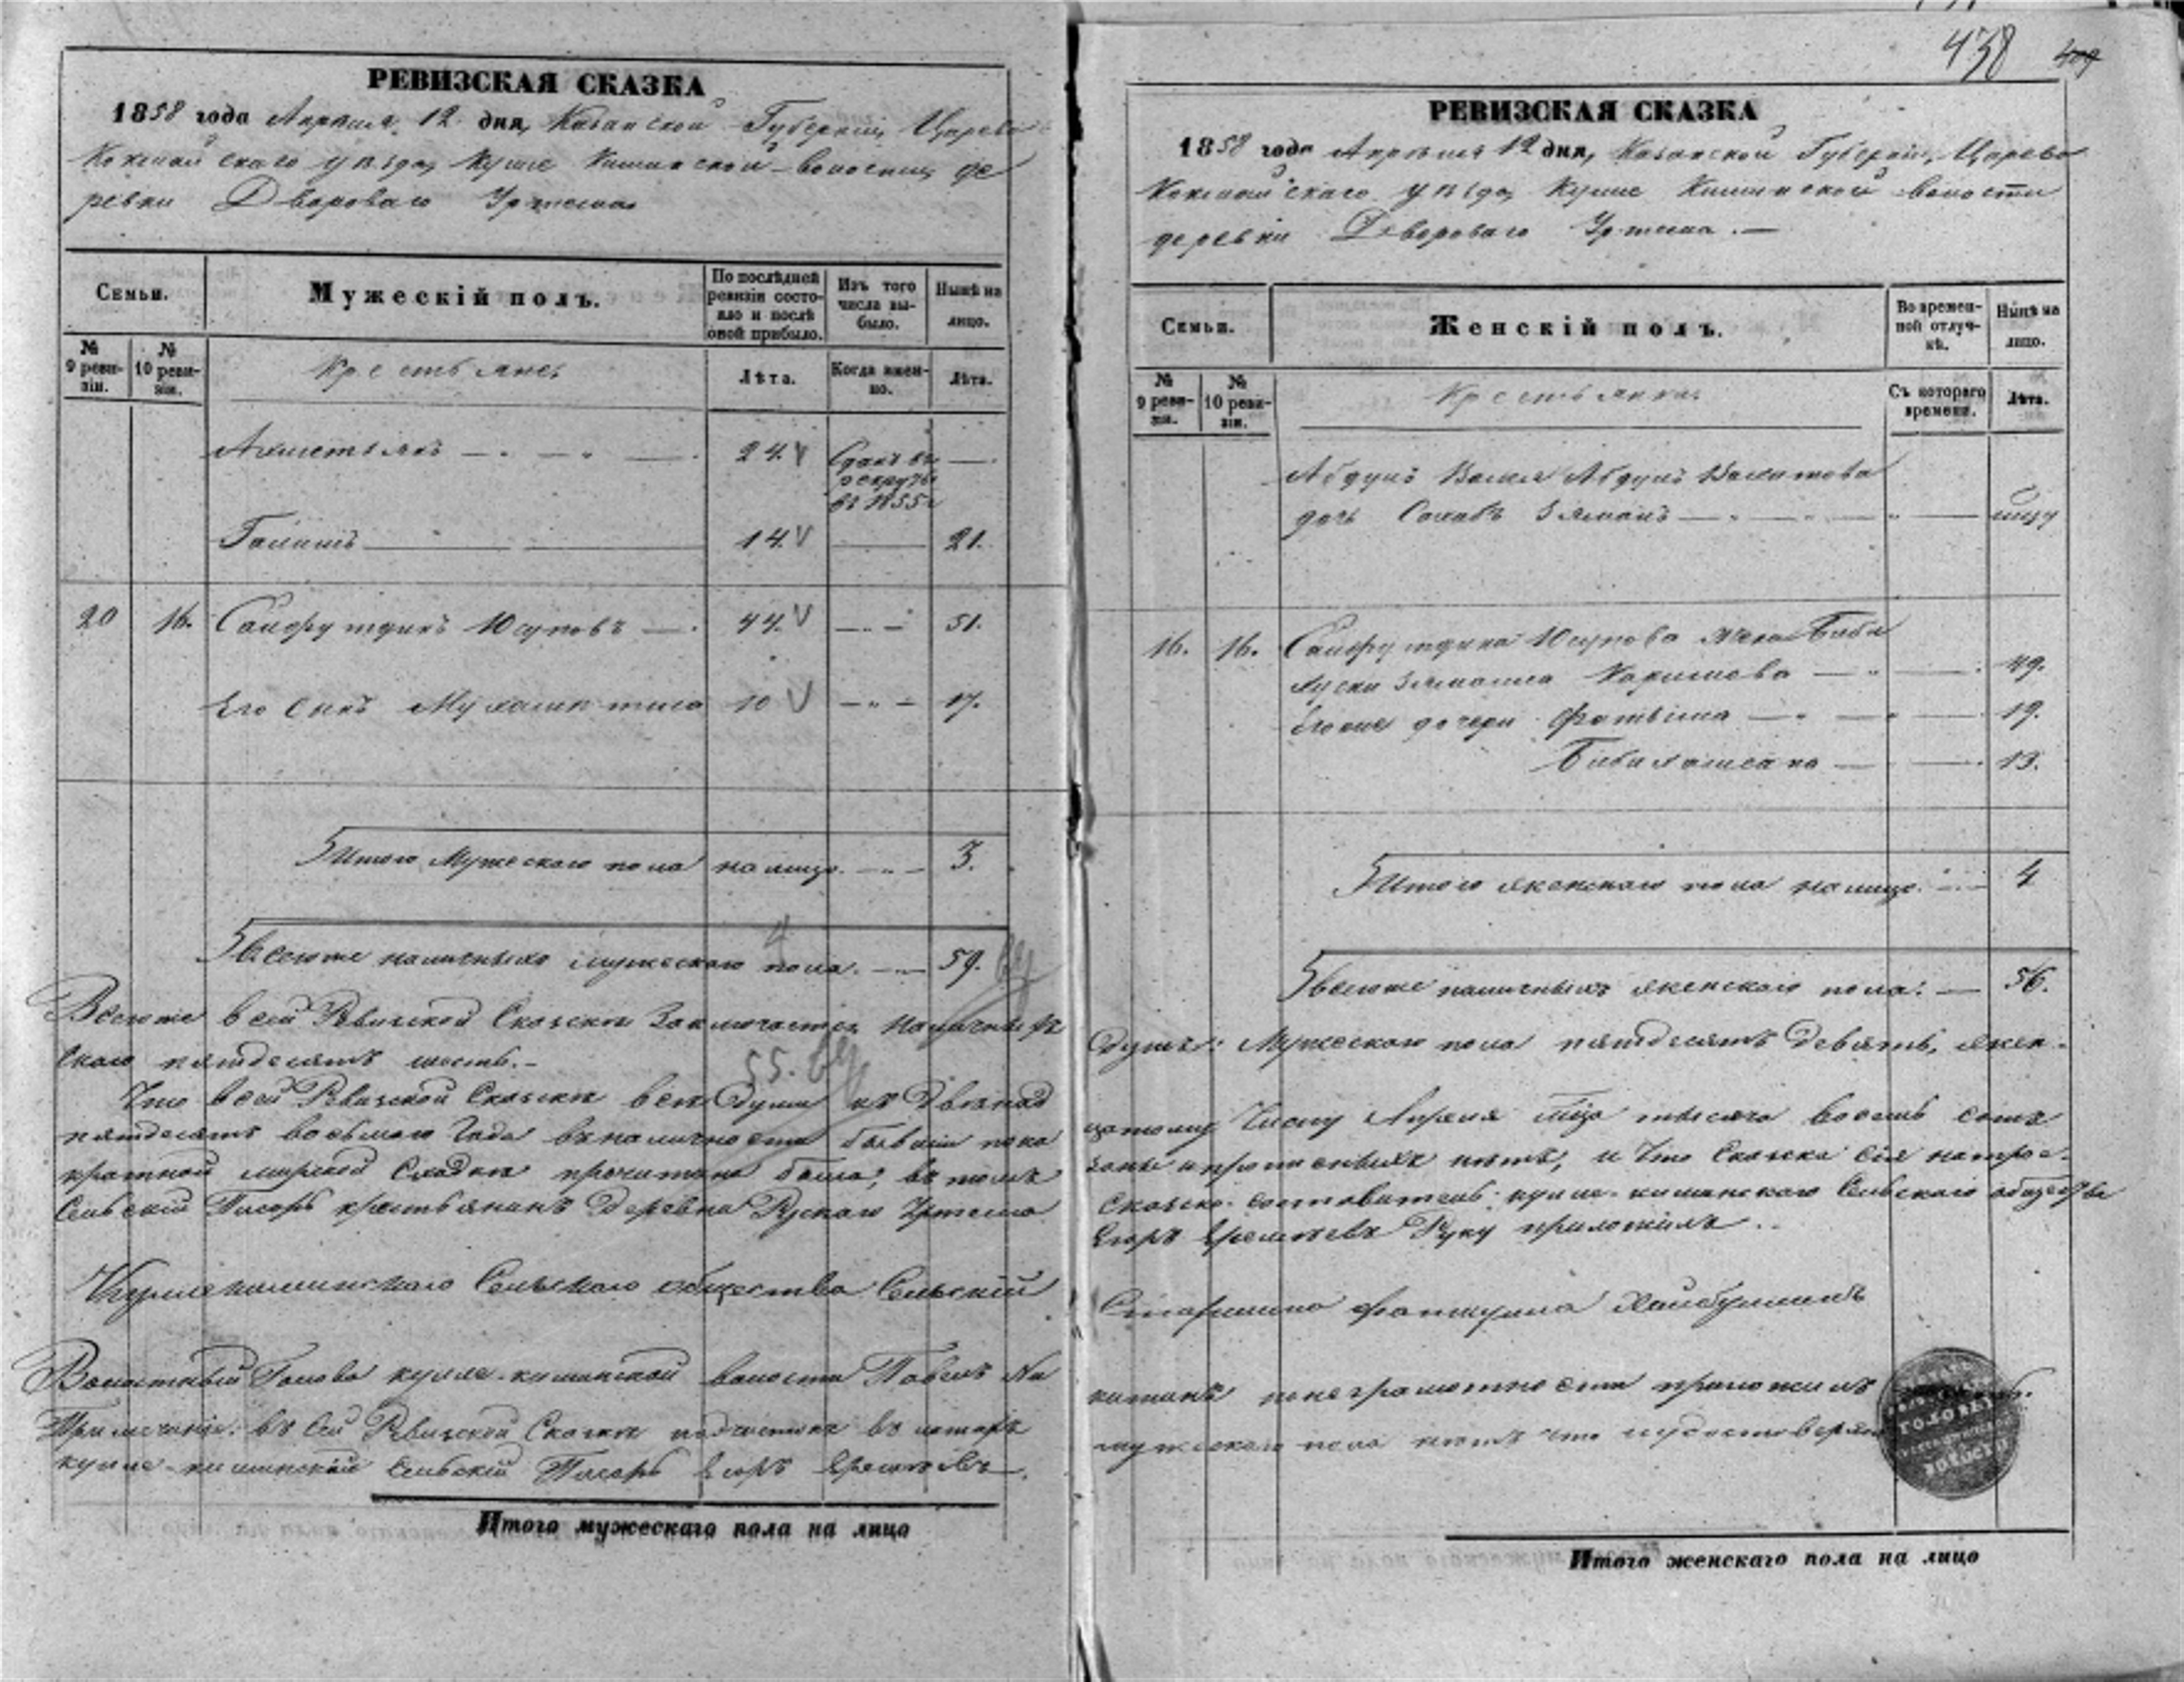 438 409
РЕВИЗСКАЯ СКАЗКА
1858 года Апреля 12 дня, Казанской Губернiи, Царево
Кокшайскаго уѣзда, Кулле Киминской волости, де
ревни Двороваго Уртема
Семьи.
Мужескій полъ.
По послѣдней ревизіи состояло и послѣ оной прибыло.
Изъ того числа выбыло.
Нынѣ на лицо.
№ 9 ревизіи.
№ 10 ревизіи.
Крестьяне.
Лѣта.
Когда именно.
Лѣта.
24.
Сданъ въ
рекруты
въ 1855 г
Галимъ 14. 21.
20 16. Сайфутдинъ Юсуповъ 44. 51.
Его сынъ 10 17.
Итого Мужескаго пола на лицо. 3.
4
Всего же наличныхъ мужескаго пола. 59.
Всего же в сей Ревизской Сказкѣ Заключается Наличныхъ
скаго пятдесятъ шесть.-
55.
Что в сей Ревизской Сказкѣ все Души къ Двенад
пятдесятъ восьмаго Года въ наличности бывшiи пока
кратной мирской Сходкѣ прочитана была; въ томъ
Сельскiй Писарь крестьянинъ Деревни Рускаго Уртема
Куллекиминскаго Сельскаго общества Сельскiй
Волостный Голова кулле-киминской волости Павелъ Ни
Примечанiе: въ сей Ревизской Сказкѣ подчистки въ
кулле-киминскiй Сельскiй Писарь Егоръ Еремѣевъ.
Итого мужескаго пола на лицо
РЕВИЗСКАЯ СКАЗКА
1858 года Апреля 12 дня, Казанской Губернiи, Царево
Кокшайскаго уѣзда, Кулле Киминской волости
деревни Двороваго Уртема.
Семьи.
Женскій полъ.
Во временной отлучкѣ.
Нынѣ на лицо.
№ 9 ревизіи.
№ 10 ревизіи.
Крестьянки
Съ котораго времени.
Лѣта.
Абдулъ Валея Абдулъ
дочь
16. 16. Сайфутдина Юсупова жена Биби
Каримова 49.
Его же дочери Фатыма 19.
13.
Итого женскаго пола на лицо. 4
Всего же наличныхъ женскаго пола. 56.
Душъ: Мужескаго пола пятдесятъ девять, жен-
цатому Числу Апреля мца тысяча восемь сотъ
заны и прописныхъ нѣтъ, и Что Сказка сiя на трое-
Сказко-составитель кулле-киминскаго Сельскаго общества
Егоръ Еремѣевъ Руку приложилъ.
Старшина Фаткулла Хайбуллинъ
китинъ по неграмотности приложилъ
мужескаго пола нѣтъ что и удостоверяю
Итого женскаго пола на лицо